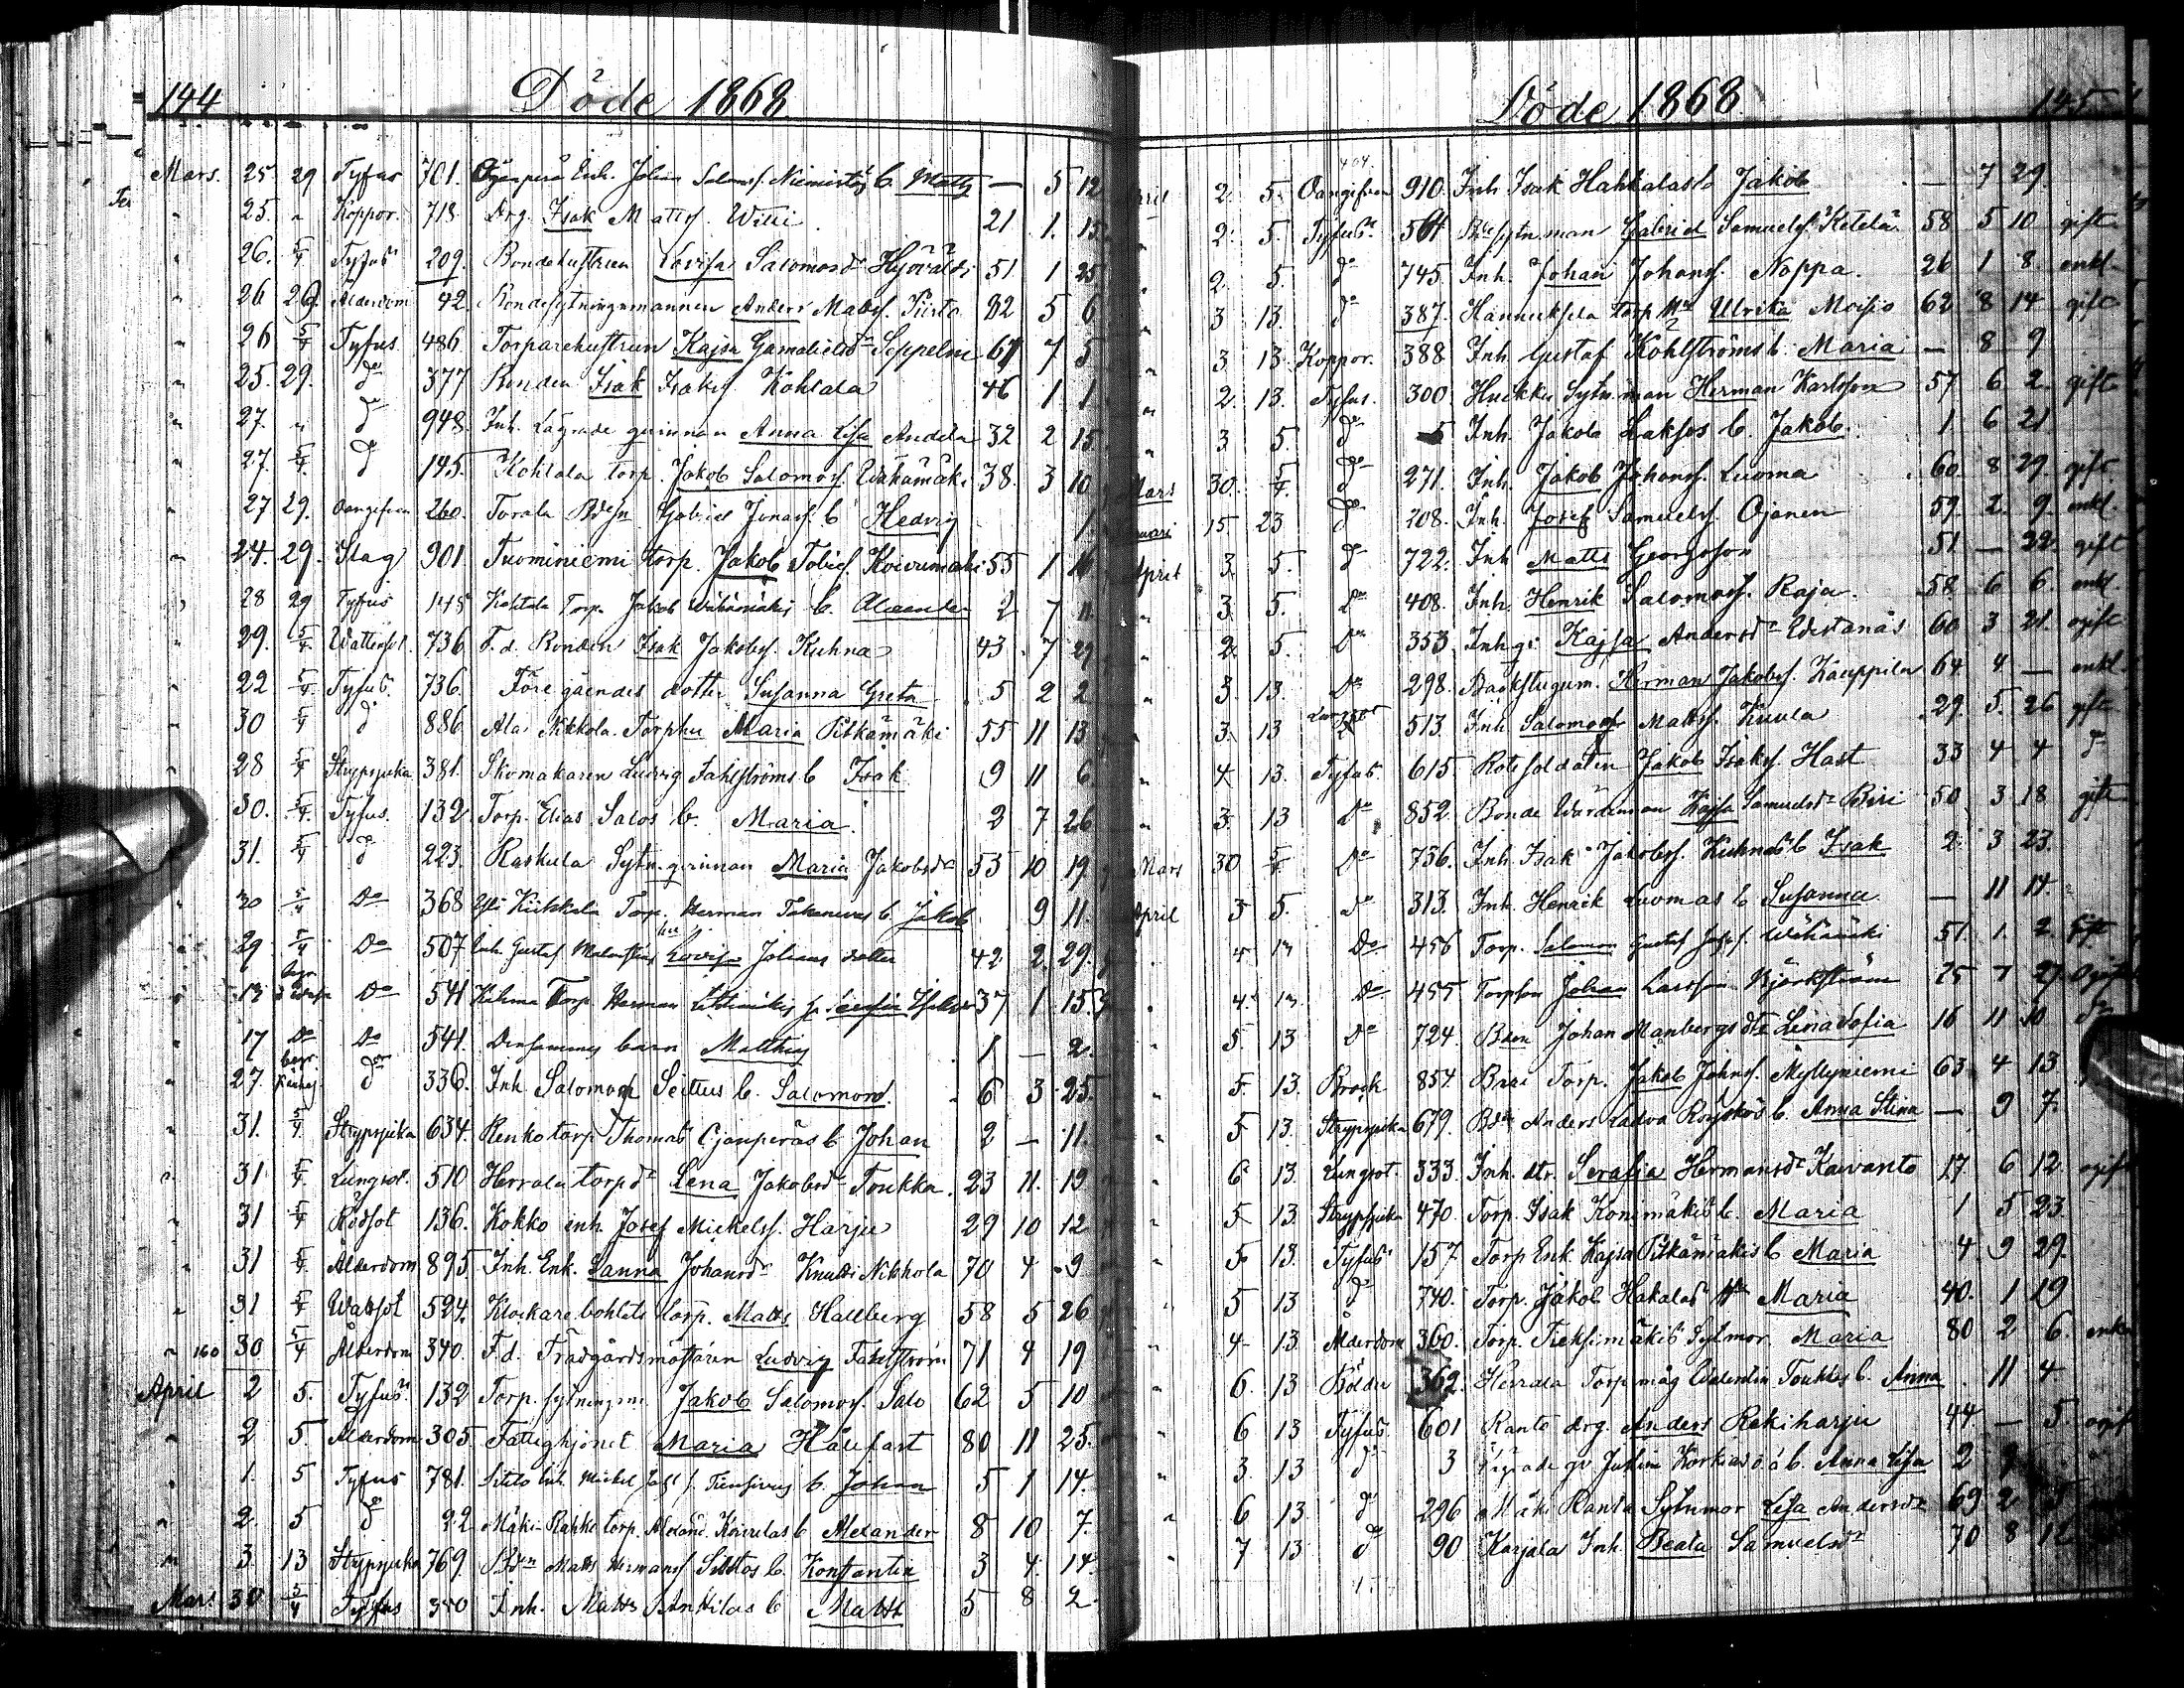 144 Döde 1868
Mars. 25. 29 Tyfus 701. Enk. Johan Salomsf. b. Matts — 5 12
" 25. " Koppor. 718 Drg. Isak Mattsf. Willi 21 1. 15
" 26. 5/4 Tyfus 209. Bondehustrun Lovisa Salomonsdr 51 1 25
" 26 29 Ålderdom 42. Bondesytningsmannen Anders Mattsf. Piirto 82 5 6
" 26 5/4 Tyfus 486. Torparehustrun Kajsa Gamalielsdr Seppelin 67 7 5
" 25. 29. do 377 Bonden Isak Isaksf. Kohtala 46 1 1
" 27. " do 948. Inh. Lägrade qvinnan Anna Lisa Andela 32 2 15
" 27. 5/4 do 145. Kohtala torp. Jakob Salomonsf. Wähämäki 38. 3 10
" 27 29. Oangifven 260. Torala Gabriel Jonasf. b Hedvig 1.
" 24. 29. Slag 901. Tuominiemi torp. Jakob Tobiesf. Koivumäki 55 1 16
" 28 29 Tyfus 145 Kohtala Torp. Jakob Wähämäkis b. Alexander 2 7 11.
" 29. 5/4 Wattensot. 736 F.d. Bonden Isak Jakobsf. Kuhna 43. 7 29
" 22 5/4 Tyfus. 736. Föregåendes dotter Susanna Greta 5 2 2
" 30 5/4 do 886 Ala Nikkola Torphu Maria Pitkämäki 55 11 13
" 28 5/4 Strypsjuka 381. Skomakaren Ludvig Fahlströms b Isak 9 11 6
" 30. 5/4 Tyfus. 132. Torp. Elias Salos b. Maria. 2 7 26
" 31. 5/4 do 223. Raskula Sytn.qvinnan Maria Jakobsdr 53 10 19
" 30 5/4 Do 368 Torp. Herman b. Jakob 9 11.
" 29 5/4 Do 507 Inh. Gustaf hu Lovisa Johans dotter 42 2. 29.
" 13 begr Do 541 Torp. Herman 37 1 15
" 17 Do Do 541. Densammes barn Matthias 1 — 2.
" 27. begr do 336. Inh Salomon Seittus b. Salomon. 6 3 25.
" 31. 5/4 Strypsjuka 634. Renko torp Thomas Ojanperäs b Johan 2 — 11.
" 31 5/4 Lungsot. 510 Herrala torp dr Lena Jakobsdr Toukka. 23 11. 19
" 31 5/4 Rödsot 136. Kokko inh. Josef Mickelsf. Harju 29 10 12
" 31 5/4 Ålderdom 895. Inh. Enk. Sanna Johansdr Knutti Nikkola 70 4 9
" 31 5/4 Wattsot 524. Klockarebohlets torp. Matts Hallberg 58 5 26
" 160 30 5/4 Ålderdom 340. F.d. Trädgårdsmästaren Ludvig Fahlström 71 4 19
April 2 5. Tyfus 132 Torp. sytningsm. Jakob Salomonsf. Salo 62 5 10
" 2 5. Ålderdom 305 Fattighjonet Maria Hållfast 80 11 25.
" 1. 5 Tyfus 781. Inh. Mickel b. Johan 5 1 14.
" 2. 5 do 22 Mäki-Rahko torp. Alexand. Koivulas b Alexander 8 10 7.
" 3. 13 Strypsjuka 769. Matts Hermansf b. Konstantin 3 4. 14.
Mars 30 5/4 Tyfus 340 Inh. Matts Anttilas b Matts 5 8 2.
Döde 1868. 145
April 2. 5. Oangifven 910. Inh Isak Hahkalas b Jakob — 7 29
" 2. 5. Tyfus 564 sytn.man Gabriel Samuelsf. Ketelä 58 5 10 gift
" 2. 5 do 745. Inh. Johan Johansf. Noppa. 26 1 8. enkl.
" 3 13. do 387. Hannuksela torp. Ulrika Moisio 62 8 14 gift
" 3 13. Koppor. 388 Inh Gustaf Kohlströms b. Maria — 8 9
" 2. 13. Tyfus. 300 Sytn.man Herman Karlsson 57 6 2. gift
" 3 5. do 5 Inh. Jakob Laksos b. Jakob. 1. 6 21
Mars 30. 5/4. do 271. Inh. Jakob Johansf. Luoma 60. 8 29. gift.
Januari 15 23 do 208. Inh. Josef Samuelsf. Ojanen 59. 2. 9. enkl.
April 3 5. do 722. Inh Matts Georgsson 51 — 22. gift
" 3. 5. Do 408. Inh. Henrik Salomonsf. Raja. 58 6 6. enkl.
" 2. 5. Do 353 Inh.qv. Kajsa Andersdr Westanås 60 3 21. ogift
" 3. 13. Do 298. Backstugum. Herman Jakobsf. Kauppila 64 4 — enkl.
" 3. 13 Lungsot 513. Inh Salomon Mattsf. Kuula 29. 5. 26 gift.
" 4 13. Tyfus. 615 Rotesoldaten Jakob Isaksf. Hast 33 4 4 do
" 3. 13 Do 852. Bonde Wärdinnan Kajsa Samuelsdr Biri 50 3 18. gift
Mars 30 5/4 Do 736. Inh. Isak Jakobsf. Kuhnas b Isak 2. 3 23.
April 3 5. Do 313. Inh. Henrik Luomas b Susanna — 11 14.
" 4 13 Do 456 Torp. Salomon Gustaf Wähämäki 51. 1. 2. Gift
" 4. 13 Do 455 Torpson Johan Larsson Björkström 25 7 27 Ogift
" 5. 13 Do 724. Johan Manbergs dtr Lina Sofia 16 11 10 do
" 5. 13. Brock 854. Biri Torp. Jakob Johnsf. Myllyniemi 63 4 13
" 5 13. Strypsjuka 679. Anders b. Anna Stina — 9 7.
" 6 13. Lungsot. 333. Inh. dtr. Serafia Hermansdr Kaivanto 17. 6 12. ogift
" 5 13. Strypsjuka 470. Torp. Isak Konimäkis b. Maria 1 5 23.
" 5 13. Tyfus 157. Torp Enk Kajsa Pitkämäkis b Maria 4. 9 29.
" 5 13 do 740. Torp. Jakob Hakalas Maria 40. 1 19
" 4 13. Ålderdom 360. Torp. Sytmor. Maria 80 2 6. enka
" 6. 13 Bölder 362. Herrala Torp måg Valentin Toukkas b. Anna 11 4
" 6 13 Tyfus 601 Ranto drg. Anders Rekiharju 44. — 5. ogift
" 3. 13 do 3 Lägrade qv b. Anna Lisa 2 9
" 6 13. do 296 Mäki Ranta Sytnmor Lisa Andersdr 69 2 5
" 7 13 do 90 Karjala Inh. Beata Samuelsdr 70 8 12